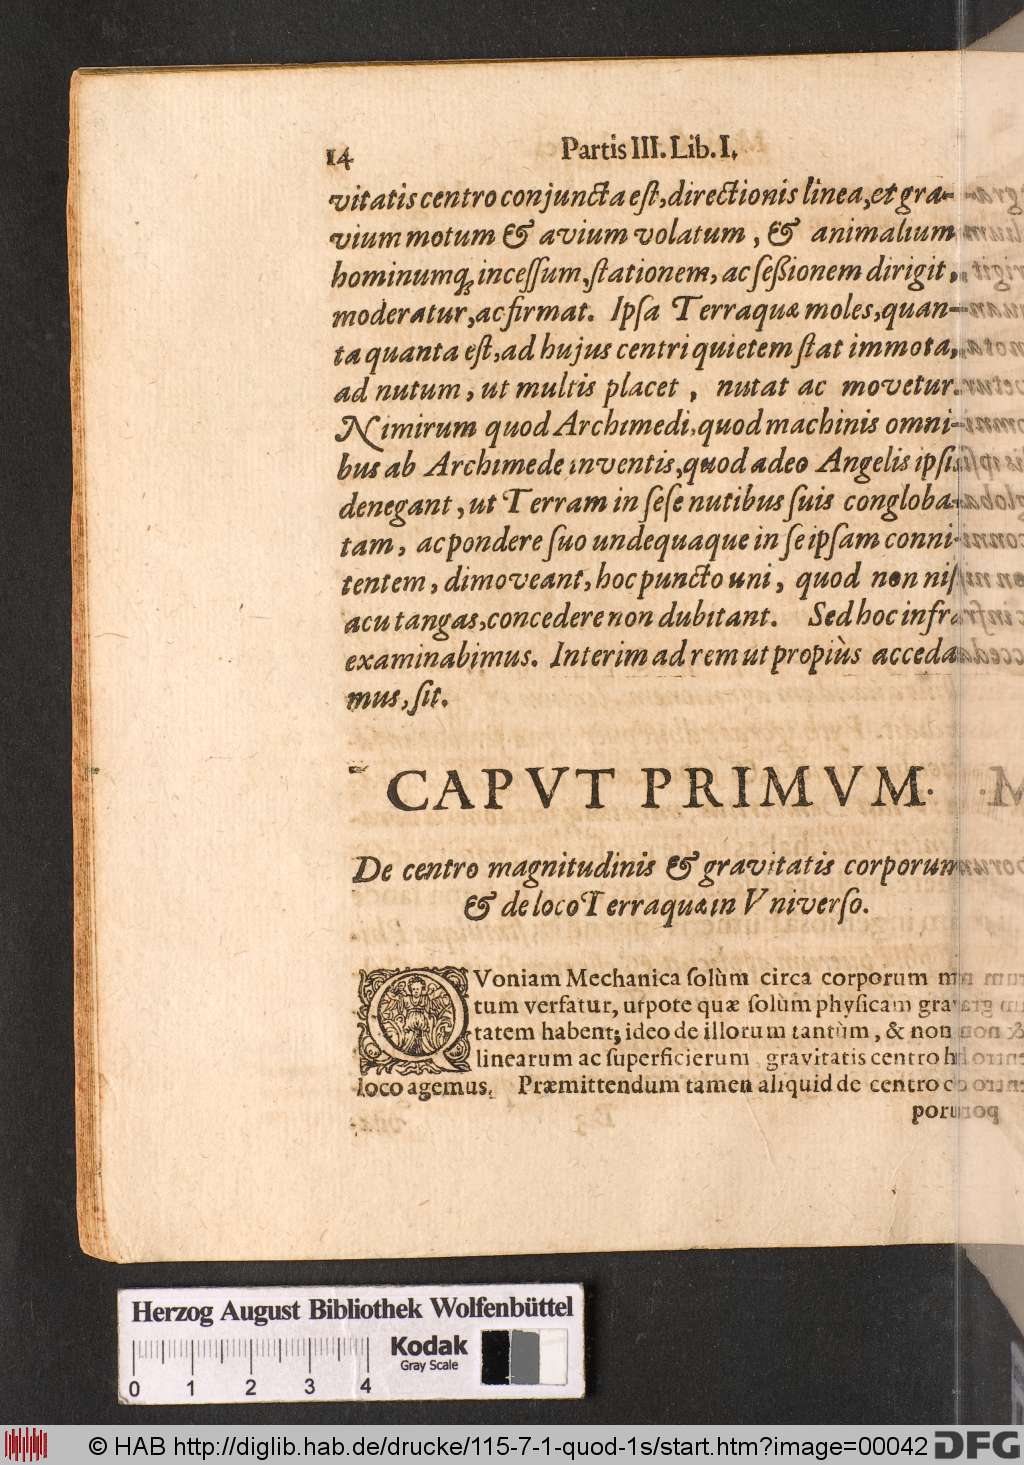 14 Partis III. Lib. I.
vitatis centro conjuncta est, directionis linea, et gra-
vium motum & avium volatum, & animalium
hominumq; incessum, stationem, ac seßionem dirigit,
moderatur, ac firmat. Ipsa Terraquæ moles, quan-
ta quanta est, ad hujus centri quietem stat immota,
ad nutum, ut multis placet, nutat ac movetur.
Nimirum quod Archimedi, quod machinis omni-
bus ab Archimede inventis, quod adeo Angelis ipsis
denegant, ut Terram in sese nutibus suis congloba-
tam, ac pondere suo undequaque in se ipsam conni-
tentem, dimoveant, hoc puncto uni, quod non nisi
acu tangas, concedere non dubitant. Sed hoc infra
examinabimus. Interim ad rem ut propiùs acceda-
mus, sit.
CAPVT PRIMVM.
De centro magnitudinis & gravitatis corporum
& de loco Terraquæ in Vniverso.
QVoniam Mechanica solùm circa corporum
tum versatur, utpote quæ solùm physicam gra
tatem habent; ideo de illorum tantùm, & non
linearum ac superficierum gravitatis centro
loco agemus. Præmittendum tamen aliquid de centro
porum
Herzog August Bibliothek Wolfenbüttel
Kodak
Gray Scale
0 1 2 3 4
© HAB http://diglib.hab.de/drucke/115-7-1-quod-1s/start.htm?image=00042 DFG